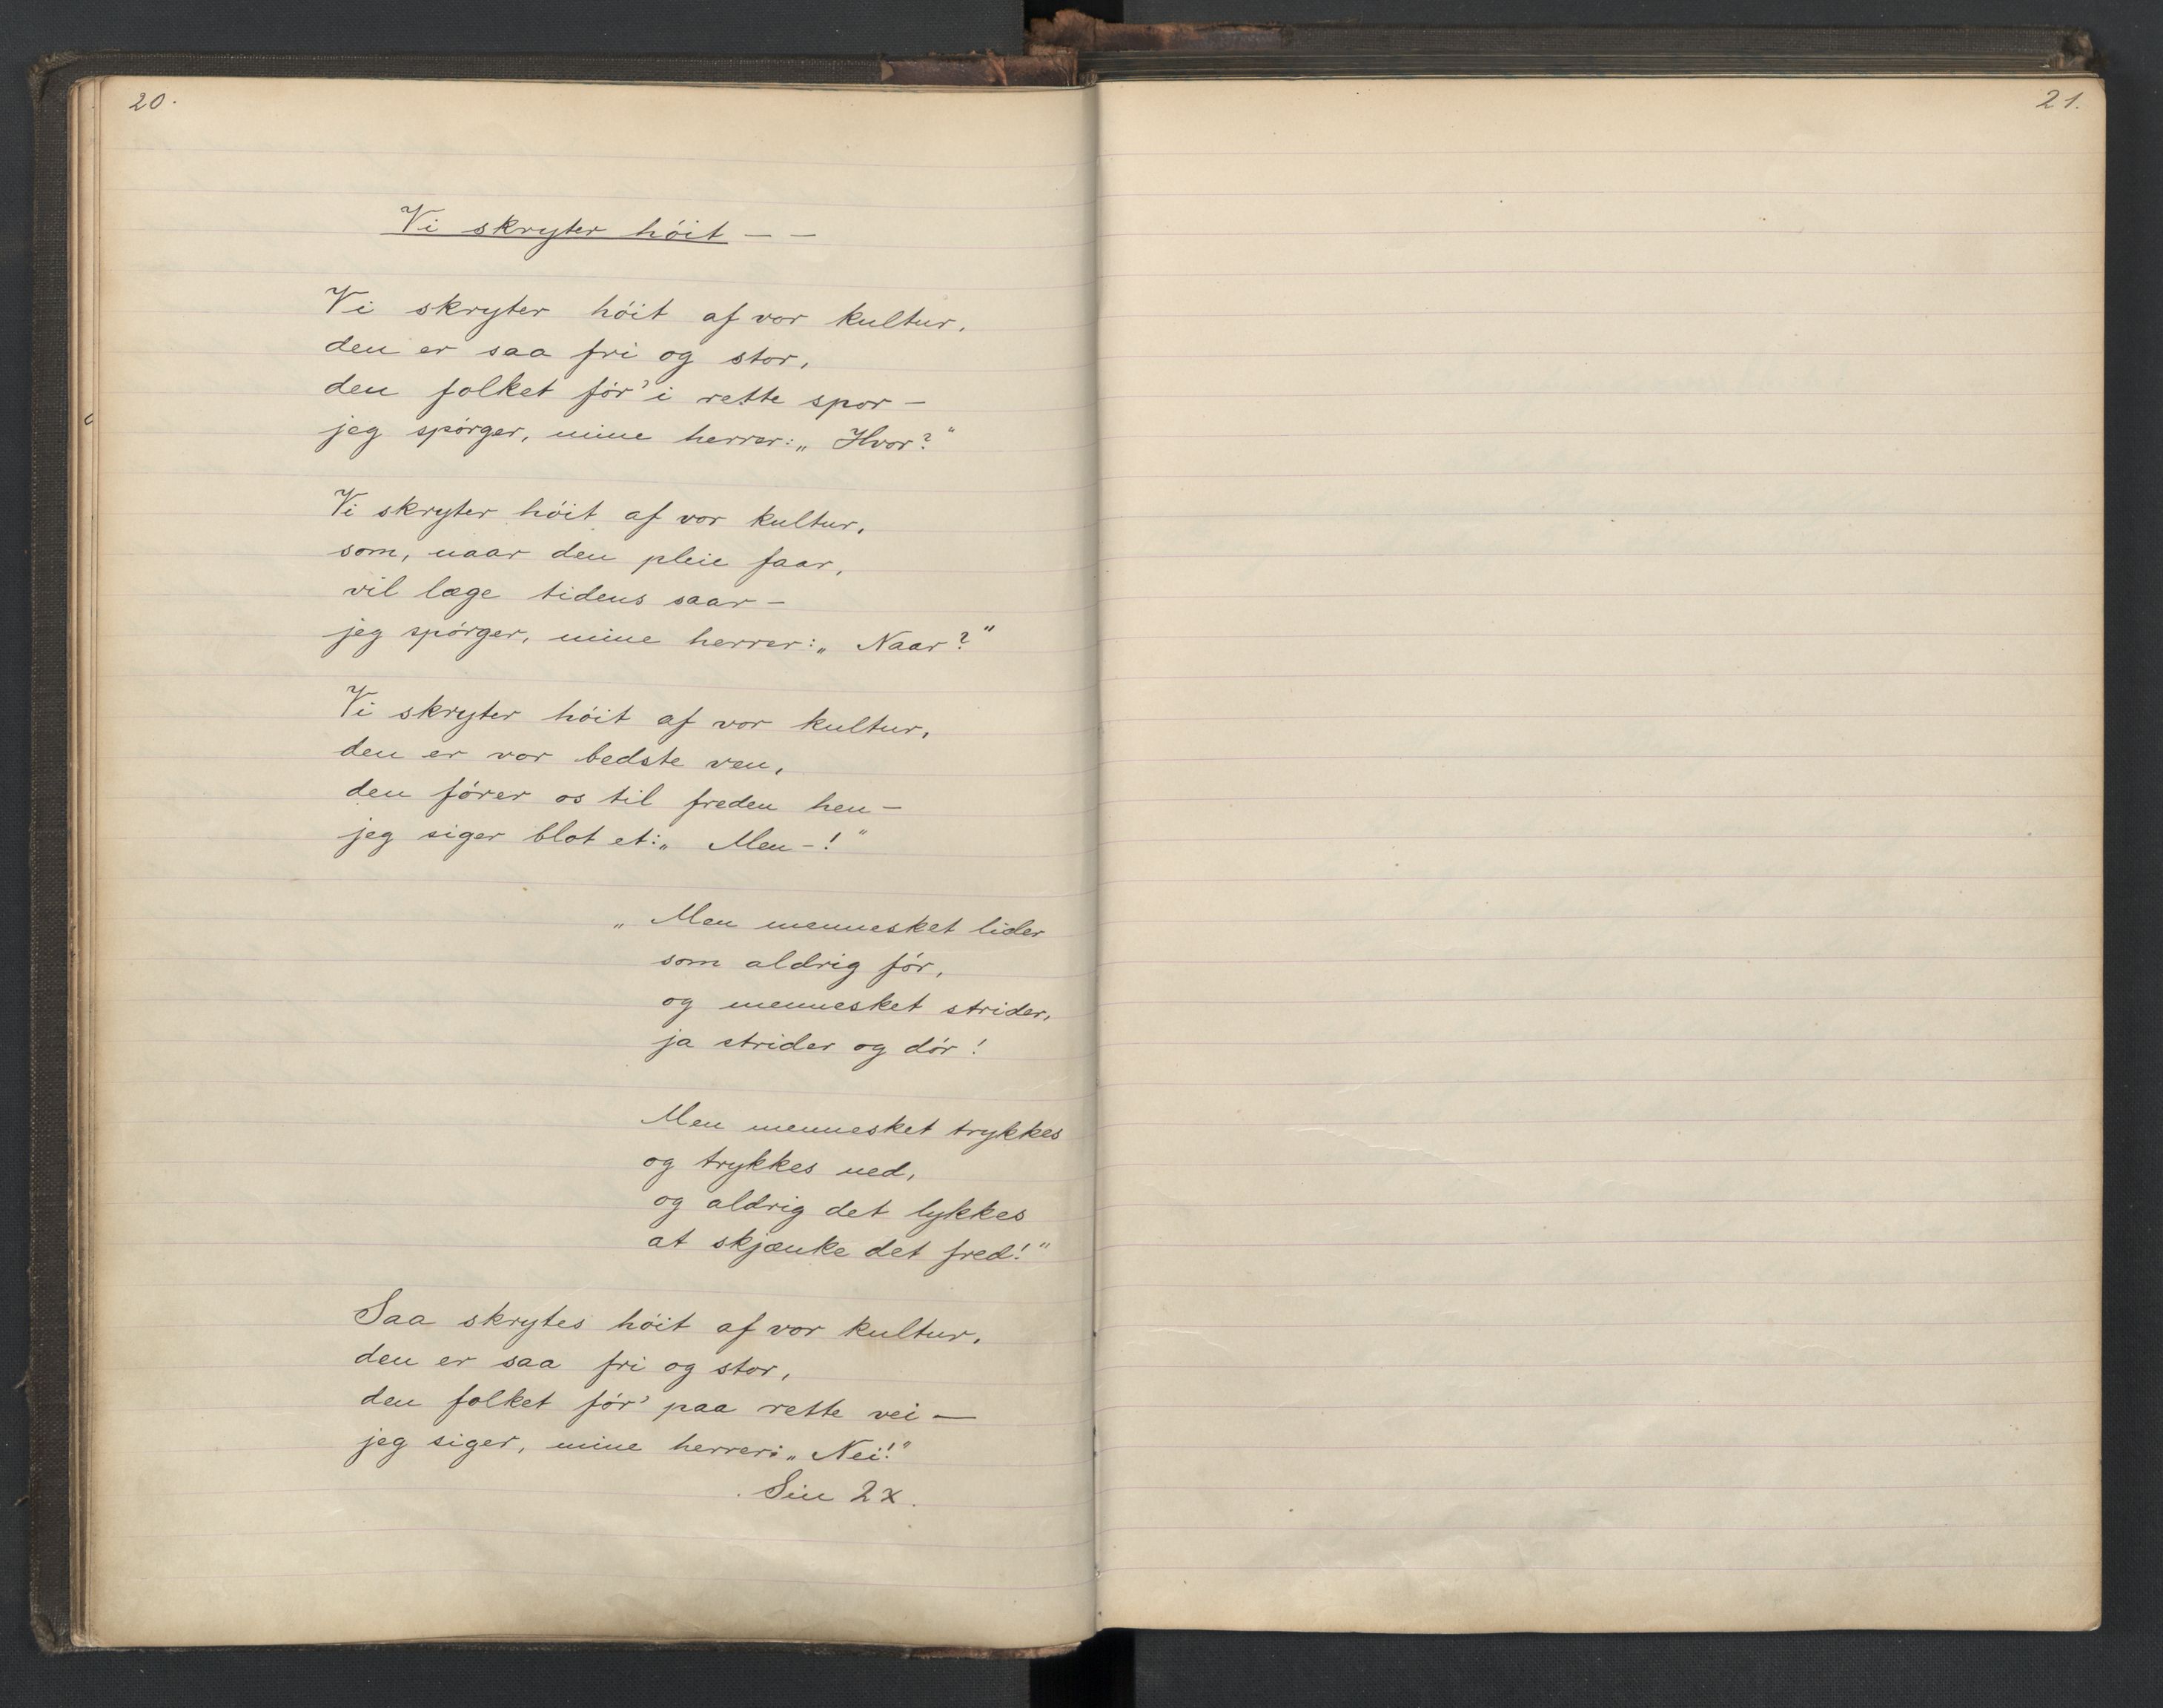 20.
Vi skryter höit – –
Vi skryter höit af vor kultur,
den er saa fri og stor,
den folket för' i rette spor –
jeg spörger, mine herrer: „Hvor?"
Vi skryter höit af vor kultur,
som, naar den pleie faar,
vil læge tidens saar –
jeg spörger, mine herrer: „Naar?"
Vi skryter höit af vor kultur,
den er vor bedste ven,
den fører os til freden hen –
jeg siger blot et: „Men –!"
„Men mennesket lider
som aldrig för,
og mennesket strider,
ja strider og dör!
Men mennesket trykkes
og trykkes ned,
og aldrig det lykkes
at skjænke det fred!"
Saa skrytes höit af vor kultur,
den er saa fri og stor,
den folket för' paa rette vei –
jeg siger, mine herrer: „Nei!"
Sin 2x.
21.